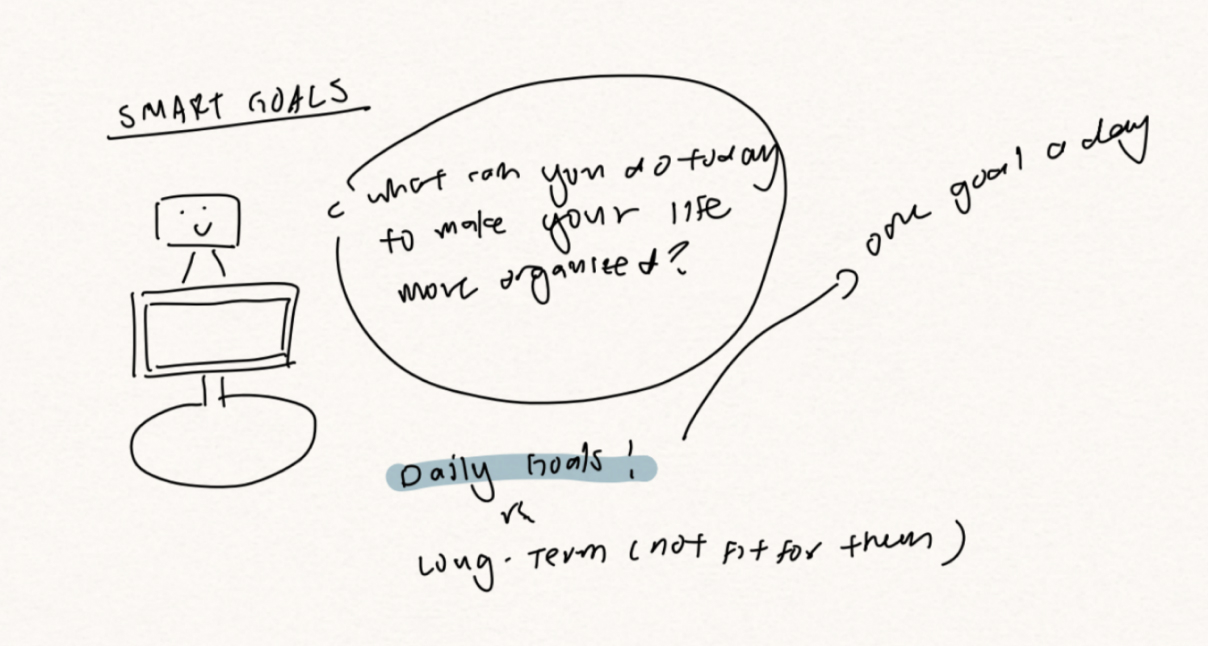 SMART GOALS
what can you do today
to make your life
more organized?
one goal a day
Daily Goals!
vs
Long-Term (not fit for them)